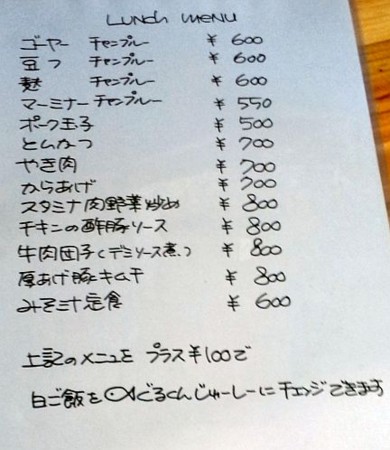 LUNCH MENU
ゴーヤー チャンプルー ¥ 600
豆フ チャンプルー ¥ 600
麩 チャンプルー ¥ 600
マーミナー チャンプルー ¥ 550
ポーク玉子 ¥ 500
とんかつ ¥ 700
やき肉 ¥ 700
からあげ ¥ 700
スタミナ肉野菜炒め ¥ 800
チキンの酢豚ソース ¥ 800
牛肉団子(デミソース煮) ¥ 800
厚あげ豚キムチ ¥ 800
みそ汁定食 ¥ 600
上記のメニューを プラス¥100で
白ご飯を ぐるくんじゅーしーにチェンジできます